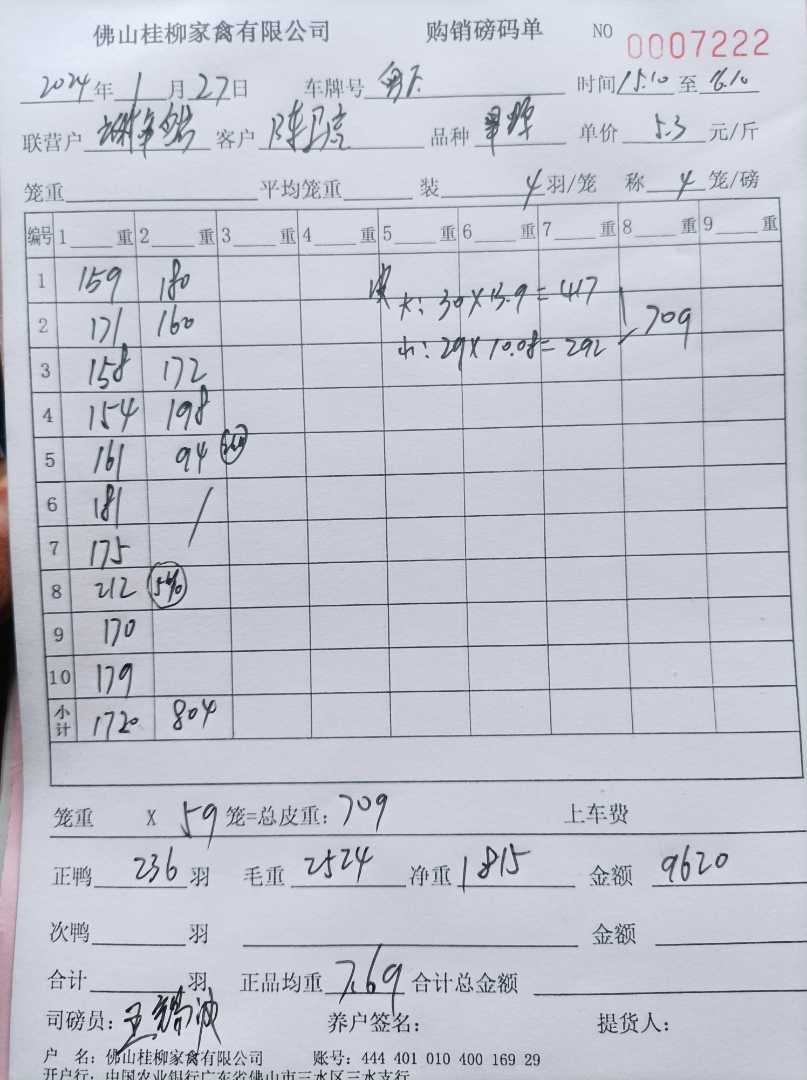 佛山桂柳家禽有限公司 购销磅码单 NO 0007222
2024年1月27日 车牌号 时间15:10至16:10
联营户 客户 陈 品种 单价 5.3 元/斤
笼重 平均笼重 装 4 羽/笼 称 4 笼/磅
编号 1 重 2 重 3 重 4 重 5 重 6 重 7 重 8 重 9 重
1 159 180 大: 30×13.9=417
2 171 160 709
3 158 172 小: 29×10.08=292
4 154 198
5 161 94
6 181
7 175
8 212
9 170
10 179
小计 1720 804
笼重 X 59 笼=总皮重: 709 上车费
正鸭 236 羽 毛重 2524 净重 1815 金额 9620
次鸭 羽 金额
合计 羽 正品均重 7.69 合计总金额
司磅员: 王 养户签名: 提货人:
户 名: 佛山桂柳家禽有限公司 账号: 444 401 010 400 169 29
开户行: 中国农业银行广东省佛山市三水区三水支行